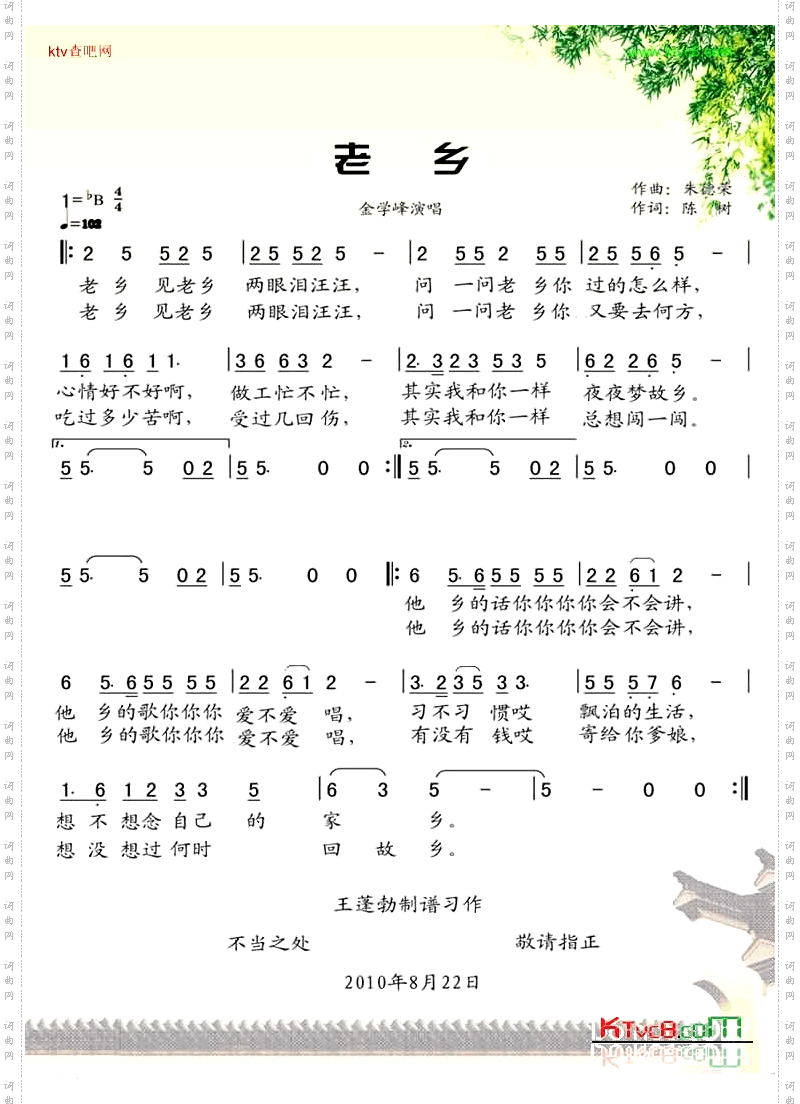 ktv查吧网
老 乡
1=♭B 4/4
♩=102
金学峰演唱
作曲：朱德荣
作词：陈 树
‖: 2 5 5 2 5 | 2 5 5 2 5 - | 2 5 5 2 5 5 | 2 5 5 6 5 - |
老 乡 见老乡 两眼泪汪汪， 问 一问老 乡你 过的怎么样，
老 乡 见老乡 两眼泪汪汪， 问 一问老 乡你 又要去何方，
1 6 1 6 1 1· | 3 6 6 3 2 - | 2· 3 2 3 5 3 5 | 6 2 2 6 5 - |
心情好不好啊， 做工忙不忙， 其实我和你一样 夜夜梦故乡。
吃过多少苦啊， 受过几回伤， 其实我和你一样 总想闯一闯。
1. 2.
5 5· 5 0 2 | 5 5· 0 0 :‖ 5 5· 5 0 2 | 5 5· 0 0 |
5 5· 5 0 2 | 5 5· 0 0 ‖: 6 5· 6 5 5 5 5 | 2 2 6 1 2 - |
他 乡的话你你你你会不会讲，
他 乡的话你你你你会不会讲，
6 5· 6 5 5 5 5 | 2 2 6 1 2 - | 3· 2 3 5 3 3· | 5 5 5 7 6 - |
他 乡的歌你你你 爱不爱 唱， 习不习 惯哎 飘泊的生活，
他 乡的歌你你你 爱不爱 唱， 有没有 钱哎 寄给你爹娘，
1· 6 1 2 3 3 5 | 6 3 5 - | 5 - 0 0 :‖
想 不 想念自己 的 家 乡。
想 没 想过何时 回 故 乡。
王蓬勃制谱习作
不当之处 敬请指正
2010年8月22日
KTvc8.com
词曲网